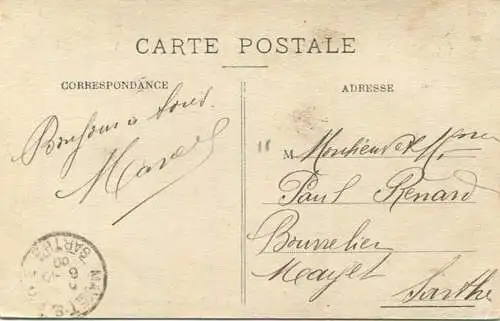 CARTE POSTALE
CORRESPONDANCE
ADRESSE
Bonjour à tous
Marcel
M Monsieur et Mme
Paul Renard
Bourrelier
Mayet
Sarthe
MAYET
SARTHE